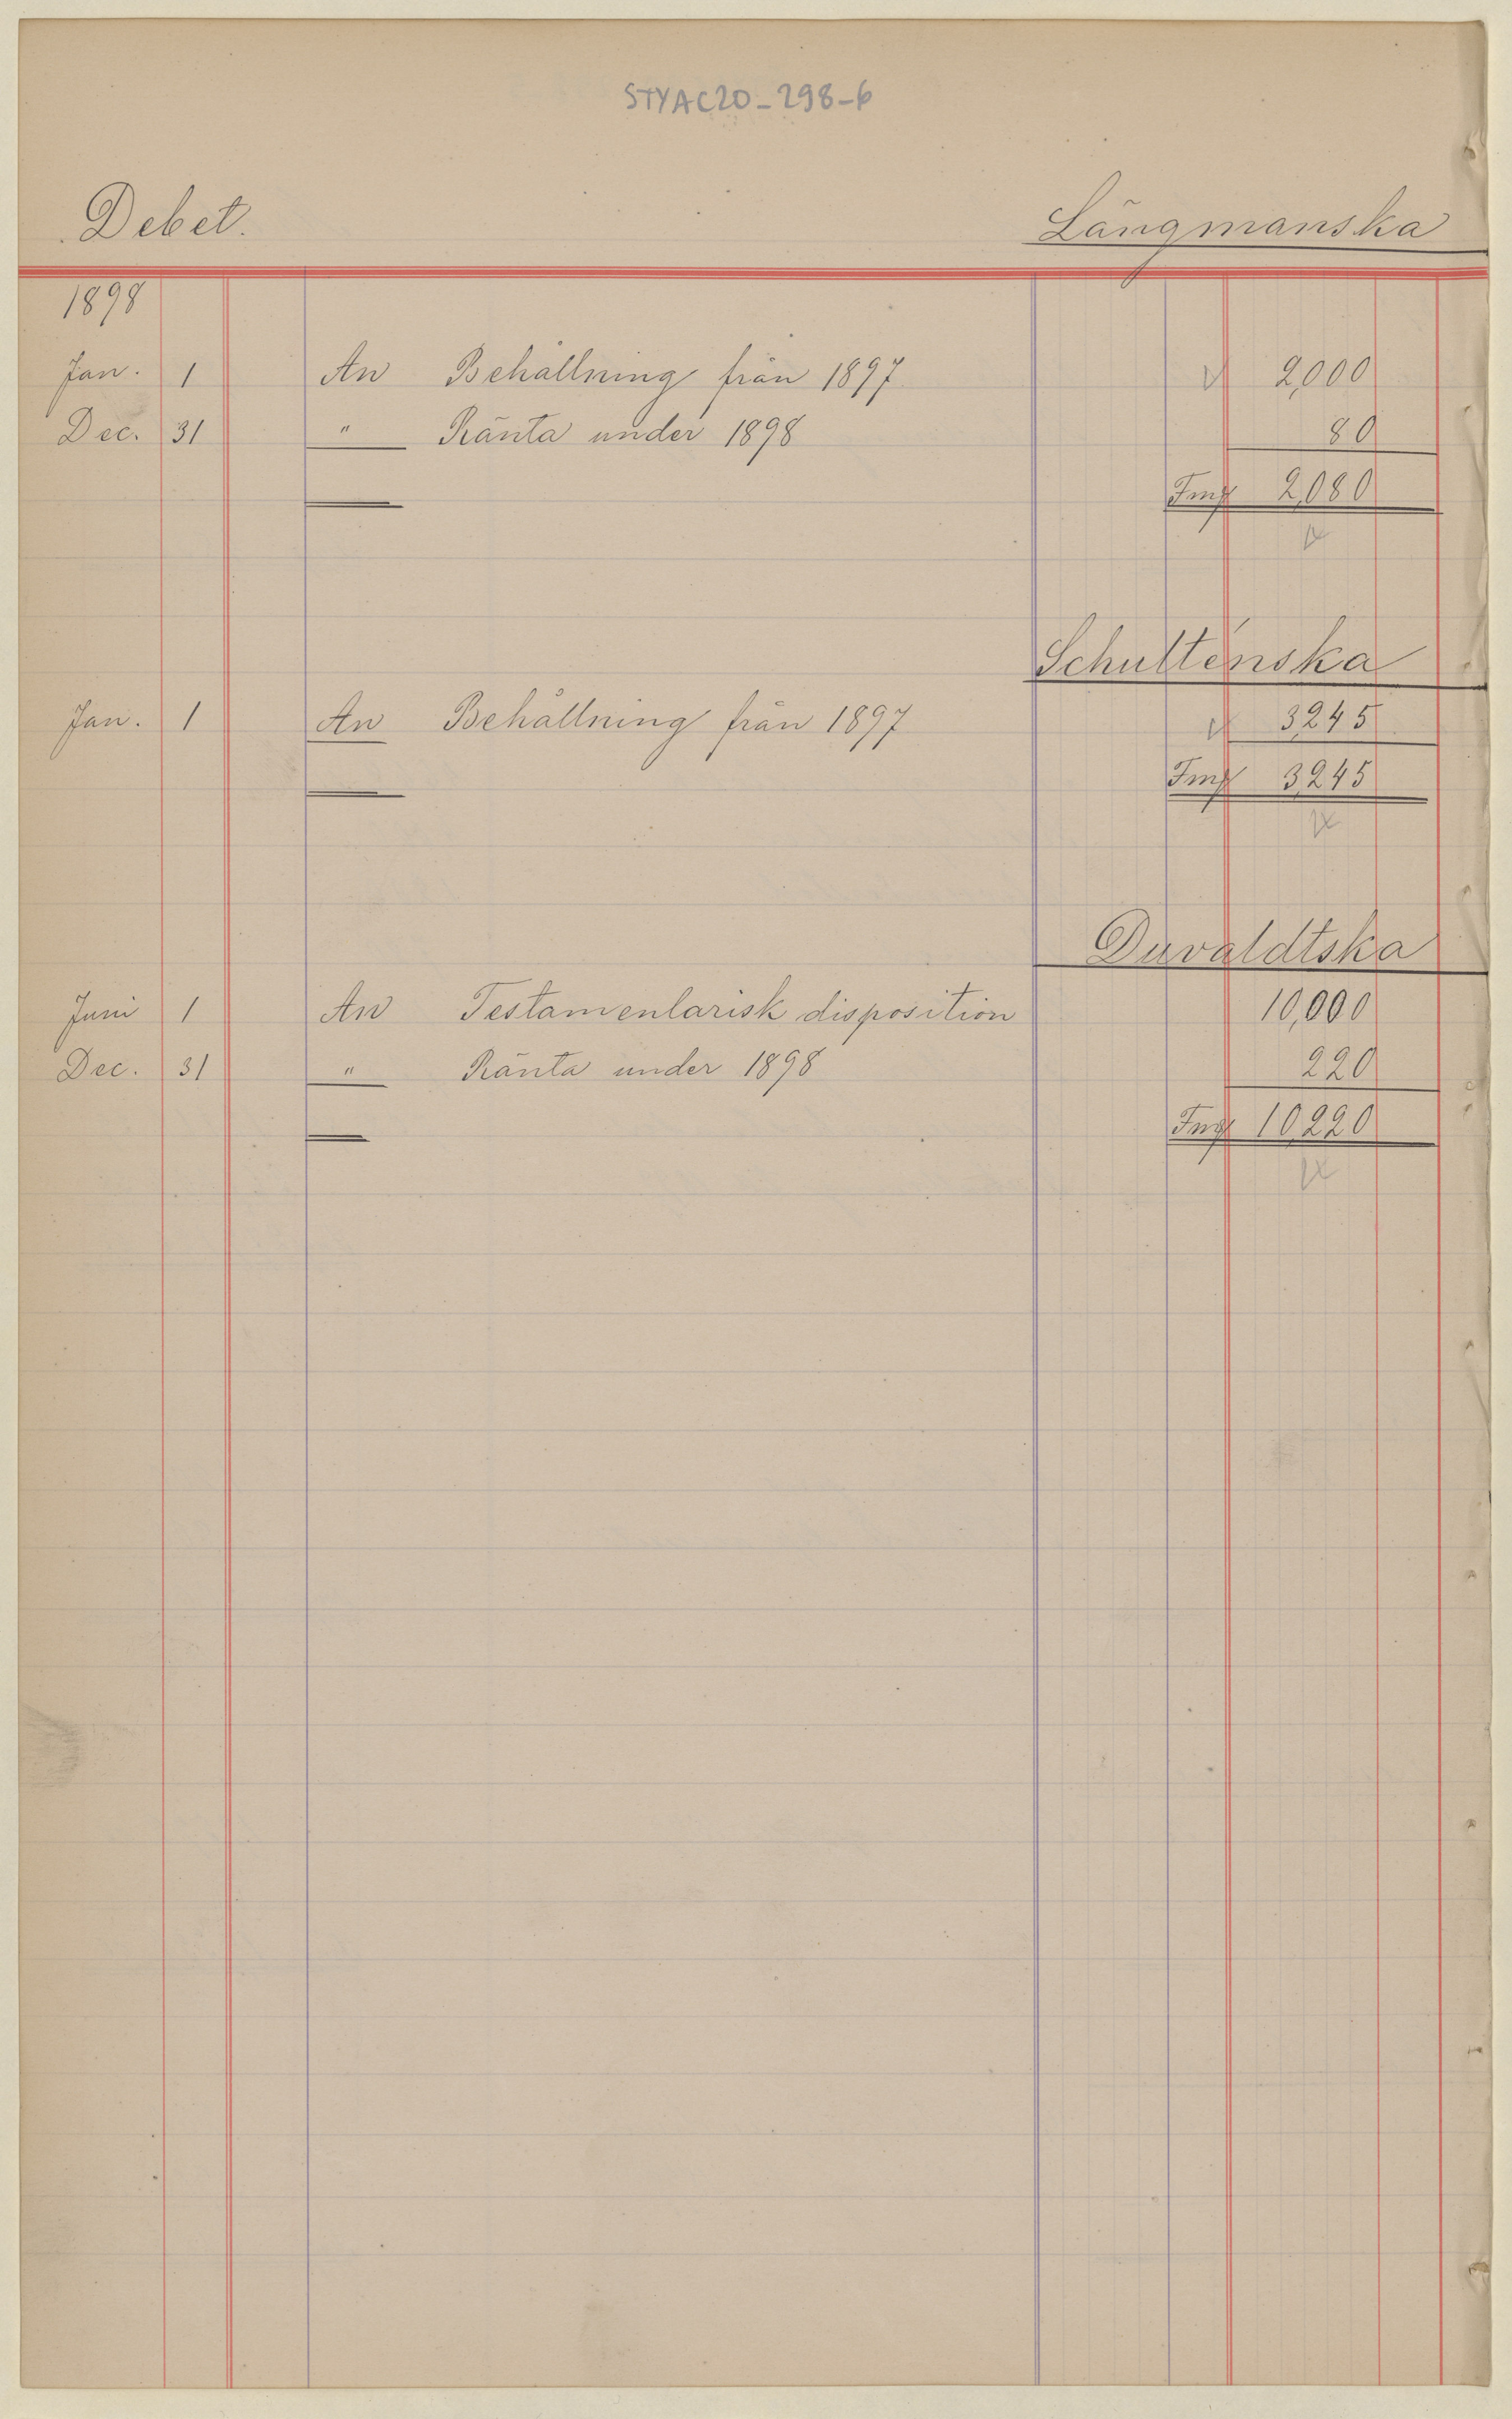 STYAC20-298-6
Debet. Längmanska
1898
Jan. 1 An Behållning från 1897 2,000
Dec. 31 " Ränta under 1898 80
Fmk 2,080
Schulténska
Jan. 1 An Behållning från 1897 3,245
Fmk 3,245
Duvaldtska
Juni 1 An Testamentarisk disposition 10,000
Dec. 31 " Ränta under 1898 220
Fmk 10,220